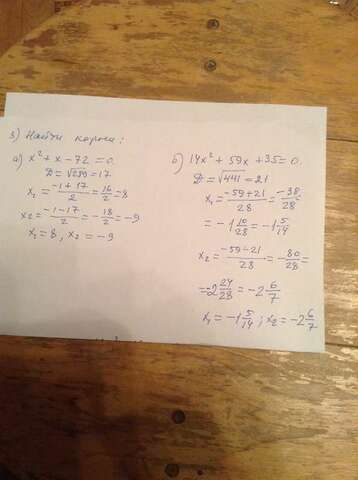 3) Найти корни:
а) x² + x - 72 = 0.
D = √289 = 17
x₁ = (-1+17)/2 = 16/2 = 8
x₂ = (-1-17)/2 = -18/2 = -9
x₁ = 8, x₂ = -9
б) 14x² + 59x + 35 = 0.
D = √441 = 21
x₁ = (-59+21)/28 = -38/28 =
= -1 10/28 = -1 5/14
x₂ = (-59-21)/28 = -80/28 =
= -2 24/28 = -2 6/7
x₁ = -1 5/14; x₂ = -2 6/7